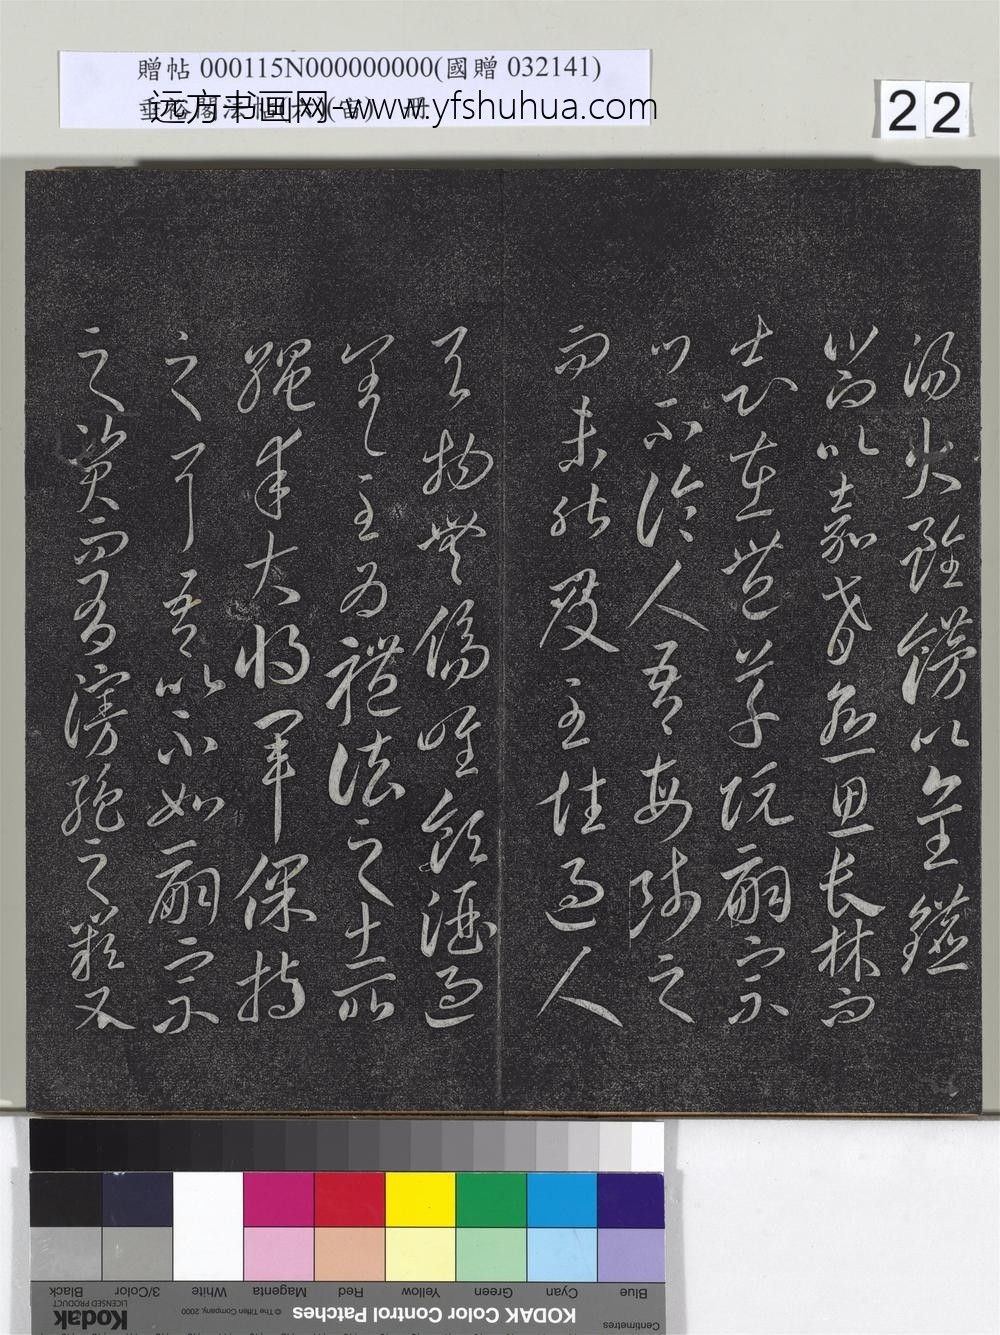 贈帖 000115N000000000(國贈 032141)
远方书画网-www.yfshuhua.com
22
湯火雖飾以金鑣
饗以嘉肴愈思長林而
志在豐草阮嗣宗
口不論人吾每師之
而未能及至性過人
與物無傷唯飲酒過
差至為禮法之士所
繩幸大將軍保持
之耳吾以不如嗣宗
之資而有慢弛之闕又
Blue Cyan Green Yellow Red Magenta White 3/Color Black
Centimetres
KODAK Color Control Patches
© The Tiffen Company, 2000
Kodak
LICENSED PRODUCT